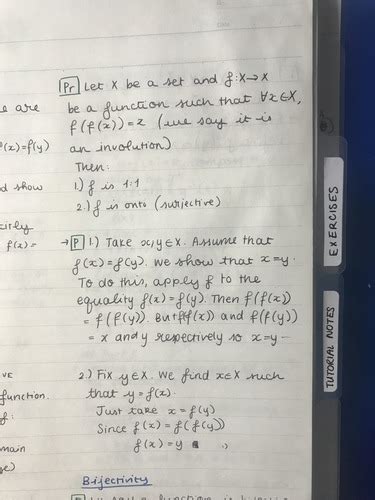 Pr Let X be a set and f: X→X
be a function such that ∀x∈X,
f(f(x)) = x (we say it is
an involution)
Then:
1.) f is 1:1
2.) f is onto (surjective)
→ P 1.) Take x,y∈X. Assume that
f(x)=f(y). We show that x=y.
To do this, apply f to the
equality f(x)=f(y). Then f(f(x))
= f(f(y)). But f(f(x)) and f(f(y))
= x and y respectively so x=y.
2.) Fix y∈X. We find x∈X such
that y=f(x).
Just take x = f(y)
Since f(x) = f(f(y))
f(x) = y
Bijectivity
e are
(x)=f(y)
d show
f(x) =
ve
function.
f:
main
EXERCISES
TUTORIAL NOTES